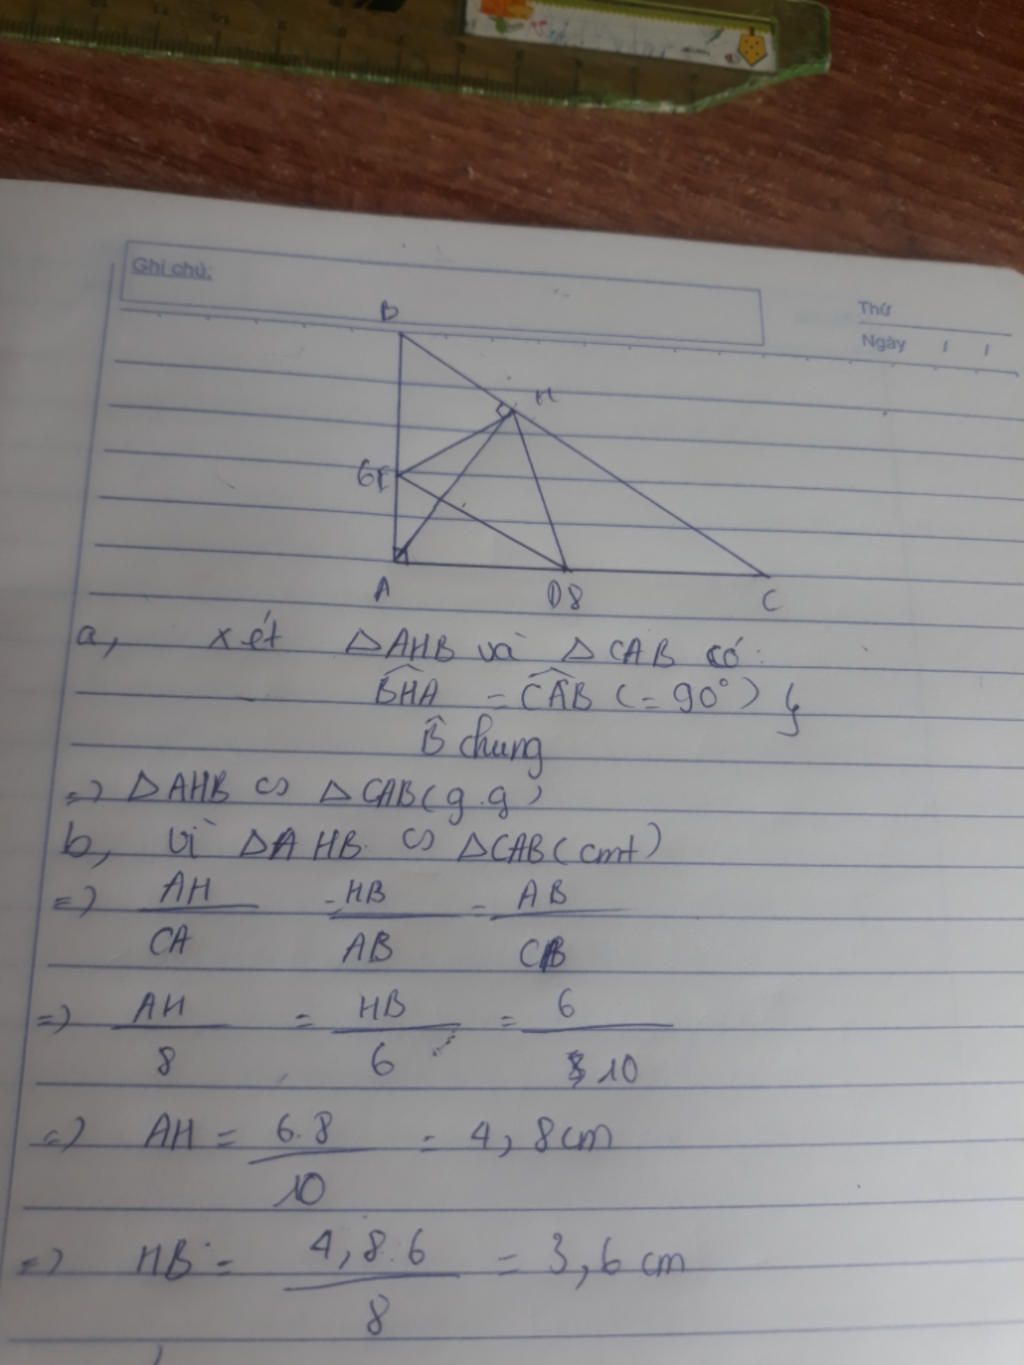 Ghi chú:
Thứ
Ngày / /
B
H
6 E
A
D 8
C
a, xét ΔAHB và ΔCAB có:
B̂HA = CÂB (= 90°) }
B̂ chung
=> ΔAHB ∽ ΔCAB (g.g)
b, vì ΔAHB ∽ ΔCAB (cmt)
=> AH/CA = HB/AB = AB/CB
=> AH/8 = HB/6 = 6/10
=> AH = 6.8/10 = 4,8cm
=> HB = 4,8.6/8 = 3,6 cm